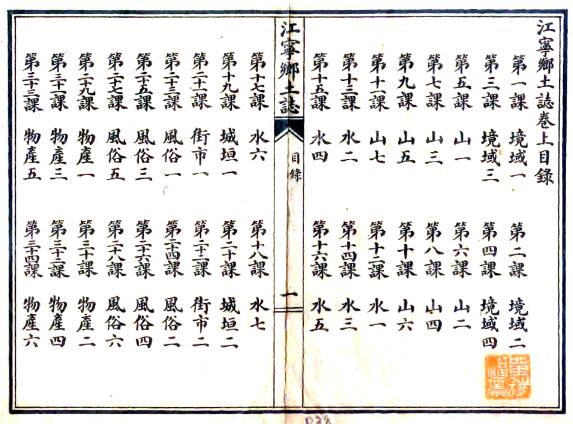 江寧鄉土誌卷上目錄
第一課　境域一　第二課　境域二
第三課　境域三　第四課　境域四
第五課　山一　第六課　山二
第七課　山三　第八課　山四
第九課　山五　第十課　山六
第十一課　山七　第十二課　水一
第十三課　水二　第十四課　水三
第十五課　水四　第十六課　水五
江寧鄉土誌　目錄　一
第十七課　水六　第十八課　水七
第十九課　城垣一　第二十課　城垣二
第二十一課　街市一　第二十二課　街市二
第二十三課　風俗一　第二十四課　風俗二
第二十五課　風俗三　第二十六課　風俗四
第二十七課　風俗五　第二十八課　風俗六
第二十九課　物產一　第三十課　物產二
第三十一課　物產三　第三十二課　物產四
第三十三課　物產五　第三十四課　物產六